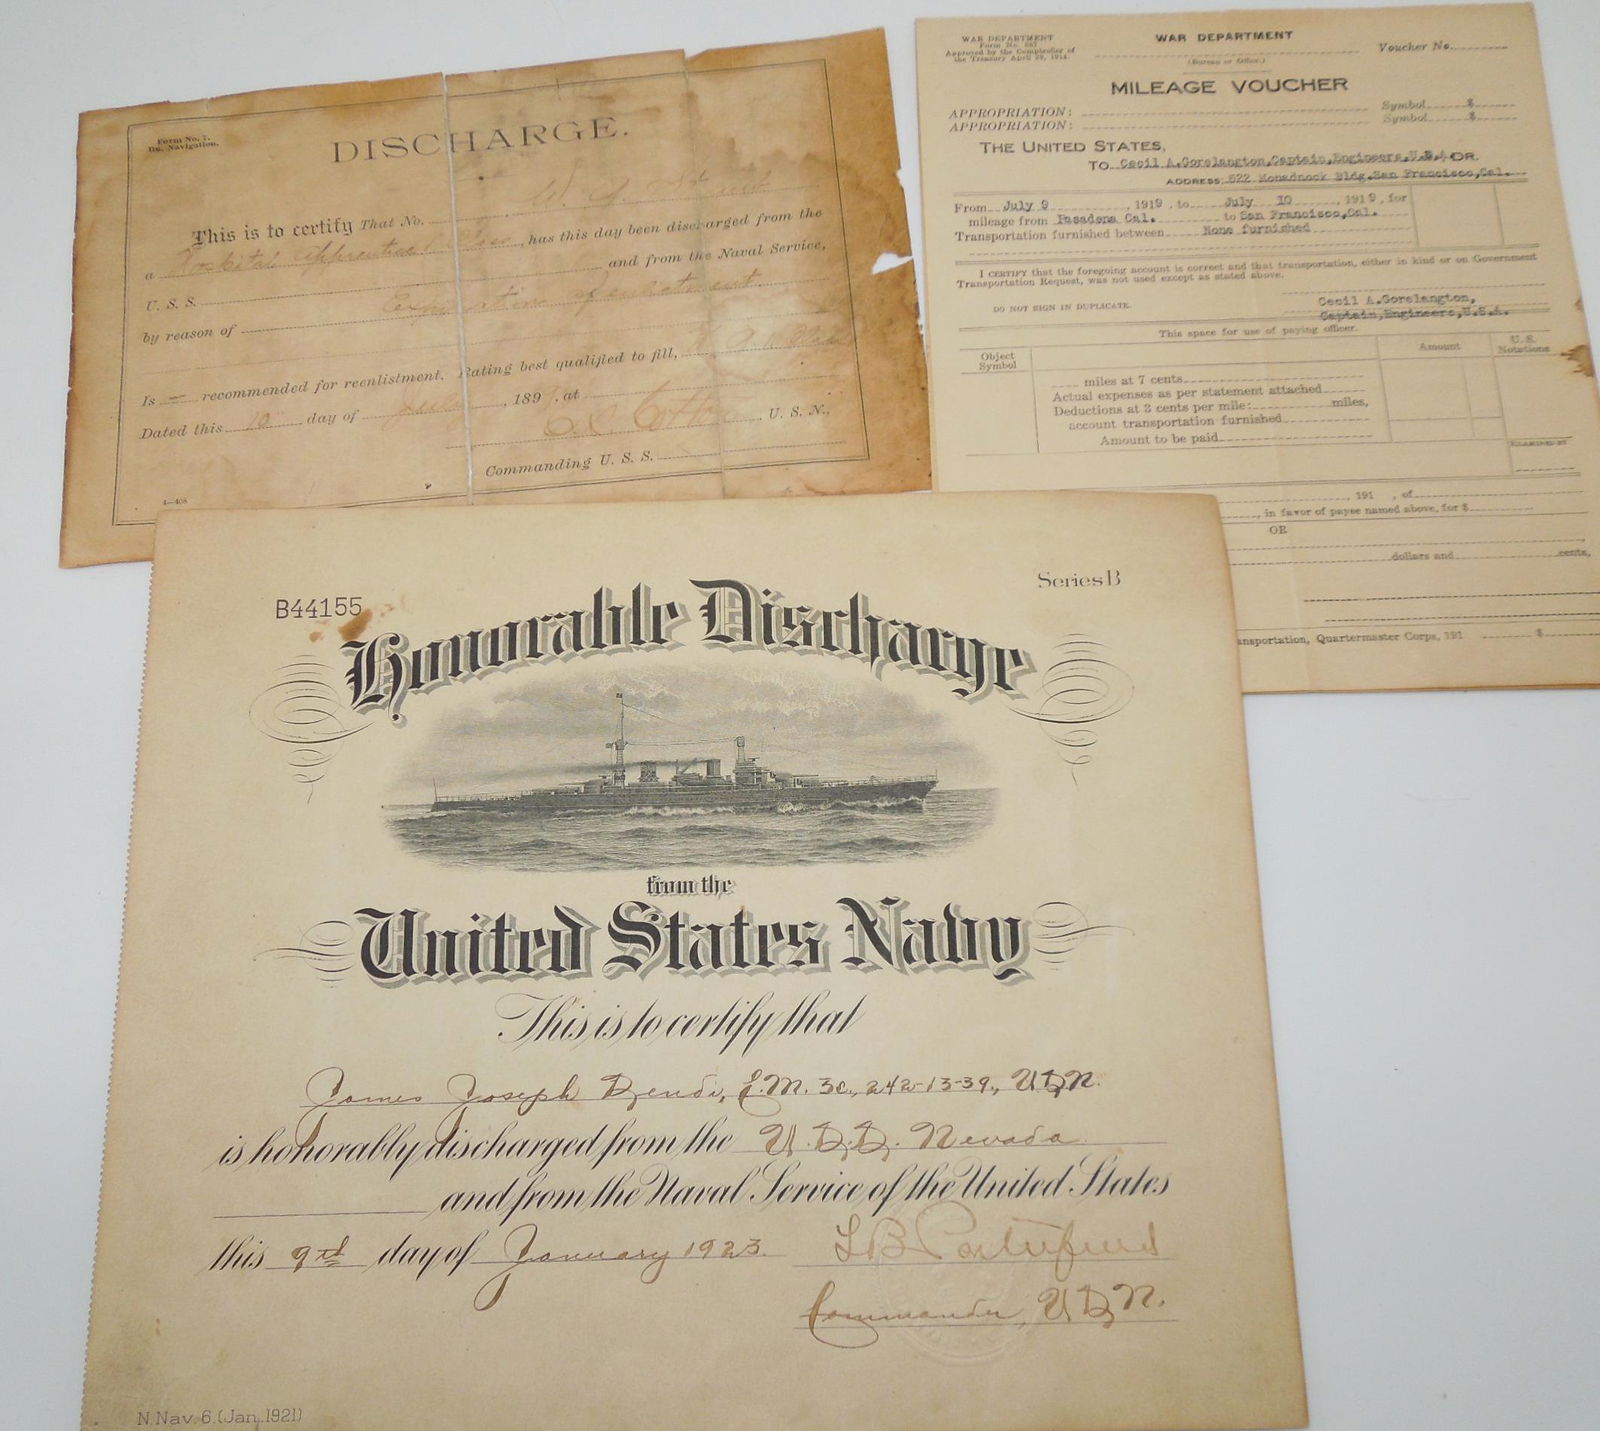 Form No. 7.
Bu. Navigation.
DISCHARGE.
This is to certify That No.
a Hospital Apprentice , has this day been discharged from the
U. S. S. and from the Naval Service,
by reason of Expiration of enlistment.
Is — recommended for reenlistment. Rating best qualified to fill,
Dated this 10 day of July , 189 , at
U. S. N.,
Commanding U. S. S.
4—408
WAR DEPARTMENT
Form No. 337
Approved by the Comptroller of
the Treasury April 29, 1914.
WAR DEPARTMENT
(Bureau or Office.)
Voucher No.
MILEAGE VOUCHER
APPROPRIATION: Symbol $
APPROPRIATION: Symbol $
THE UNITED STATES,
TO Cecil A.Gorelangton,Captain,Engineers,U.S.A. DR.
ADDRESS: 522 Monadnock Bldg.San Francisco,Cal.
From July 9 , 1919 , to July 10 , 1919 , for
mileage from Pasadena Cal. to San Francisco,Cal.
Transportation furnished between None furnished
I CERTIFY that the foregoing account is correct and that transportation, either in kind or on Government
Transportation Request, was not used except as stated above.
DO NOT SIGN IN DUPLICATE.
Cecil A.Gorelangton,
Captain,Engineers,U.S.A.
This space for use of paying officer.
Object
Symbol
Amount
U. S.
Notations
miles at 7 cents
Actual expenses as per statement attached
Deductions at 3 cents per mile: miles,
account transportation furnished
Amount to be paid
EXAMINED BY
, 191 , of
, in favor of payee named above, for $
OR
dollars and cents,
ansportation, Quartermaster Corps, 191 $
B44155
Series B
Honorable Discharge
from the
United States Navy
This is to certify that
James Joseph , 3c., 242-13-39., U.S.N.
is honorably discharged from the U.S.S. Nevada
and from the Naval Service of the United States
this 9th day of January 1923.
Commander, U.S.N.
N. Nav. 6. (Jan. 1921)